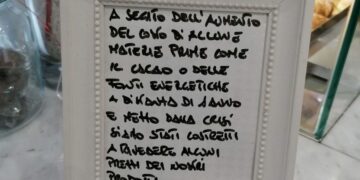 A SEGUITO DELL'AUMENTO
DEL COSTO D'ALCUNE
MATERIE PRIME COME
IL CACAO O DELLE
FONTI ENERGETICHE
A DI SANNO
E NETTO DALLA CRISI
SIAMO STATI COSTRETTI
A RIVEDERE ALCUNI
PREZZI DEI NOSTRI
PRODOTTI